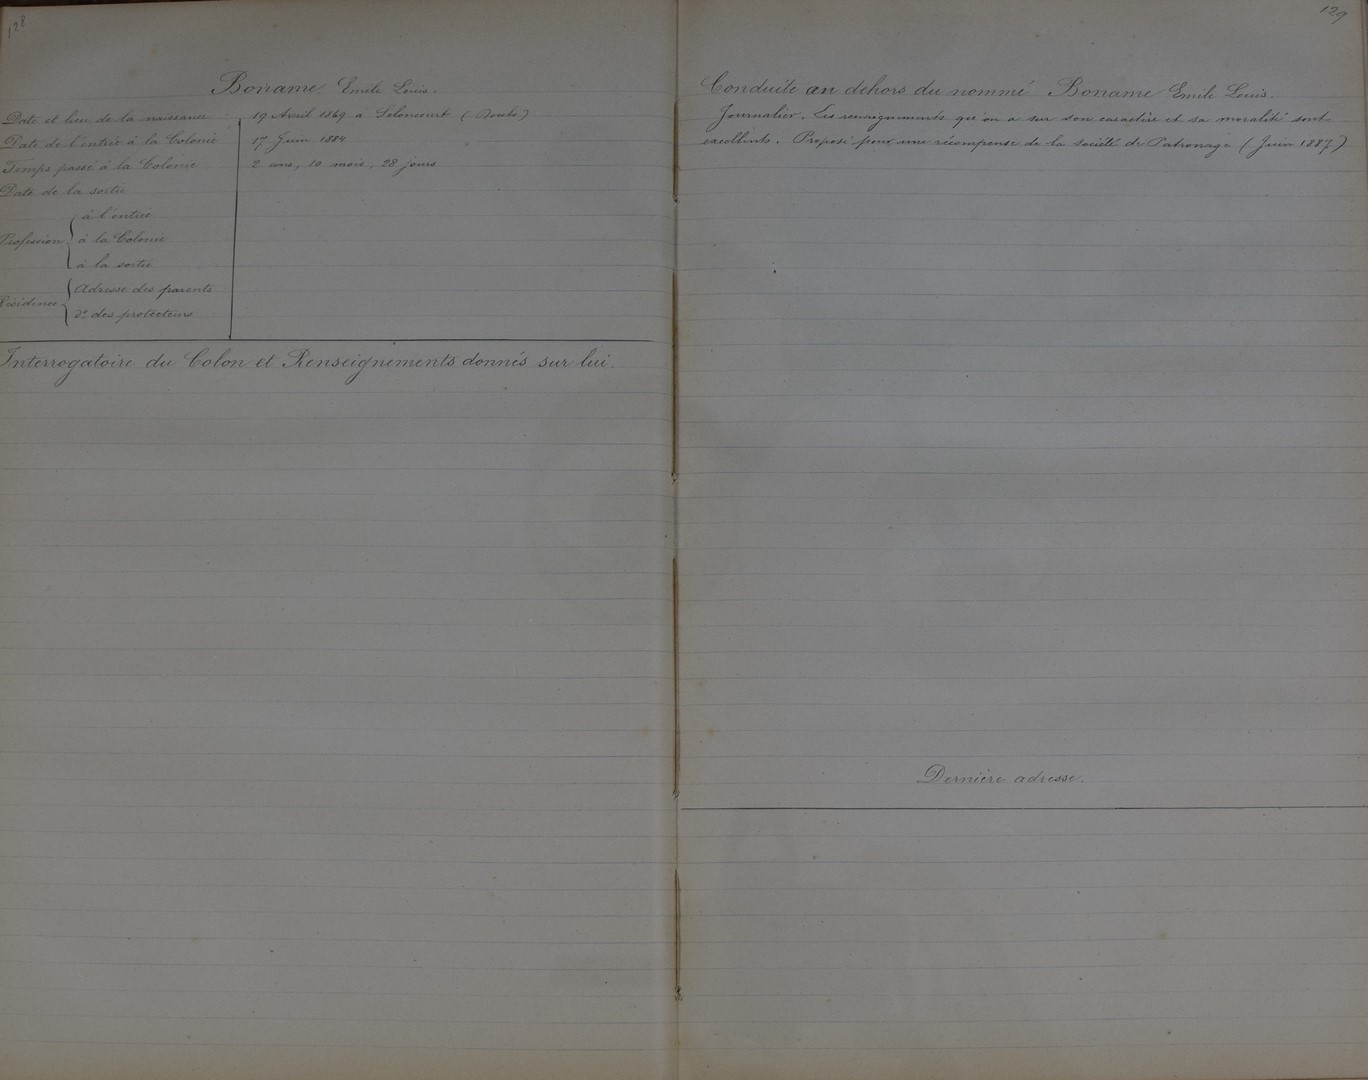 128
Boname Emile Louis.
Date et lieu de la naissance 19 Avril 1869 à Seloncourt (Doubs)
Date de l'entrée à la Colonie 17 Juin 1884
Temps passé à la Colonie 2 ans, 10 mois, 28 jours
Date de la sortie
Profession
à l'entrée
à la Colonie
à la sortie
Résidence
Adresse des parents
do des protecteurs
Interrogatoire du Colon et Renseignements donnés sur lui.
129
Conduite au dehors du nommé Boname Emile Louis.
Journalier. Les renseignements qu'on a sur son caractère et sa moralité sont
excellents. Proposé pour une récompense de la société de Patronage (Juin 1887)
Dernière adresse.